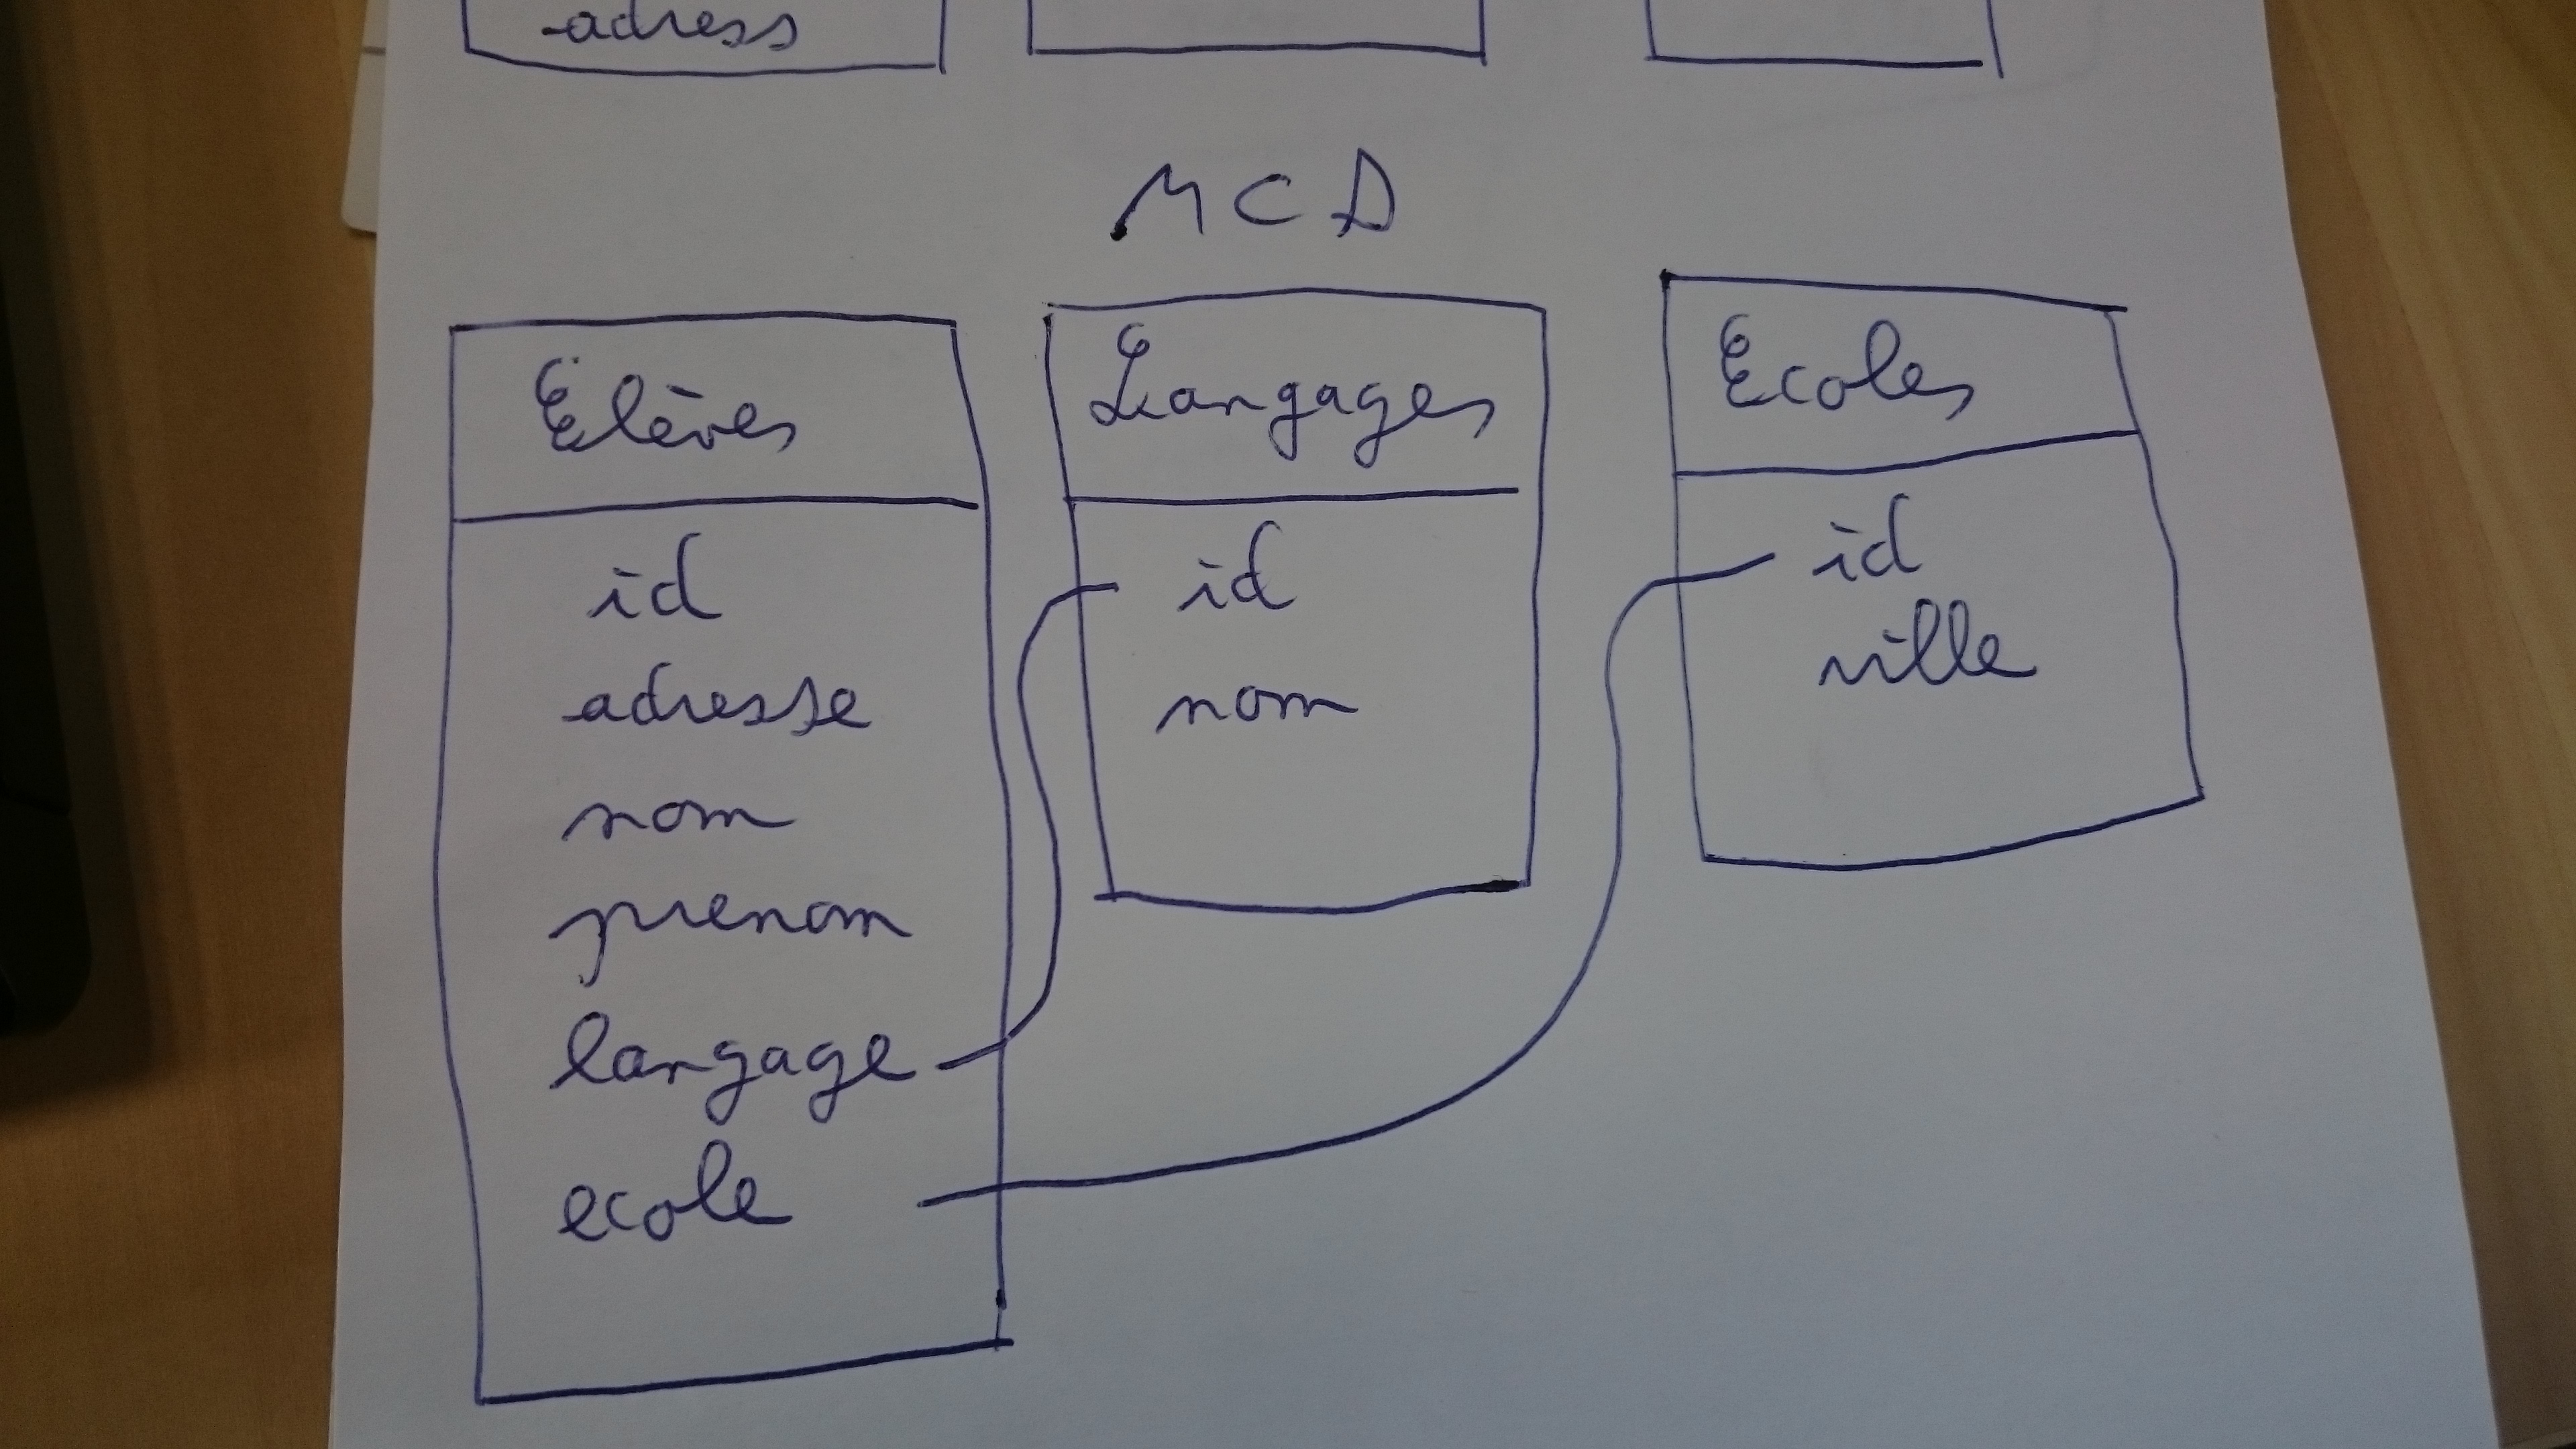 adress
MCD
Elèves
id
adresse
nom
prenom
langage
ecole
Langages
id
nom
Ecoles
id
ville